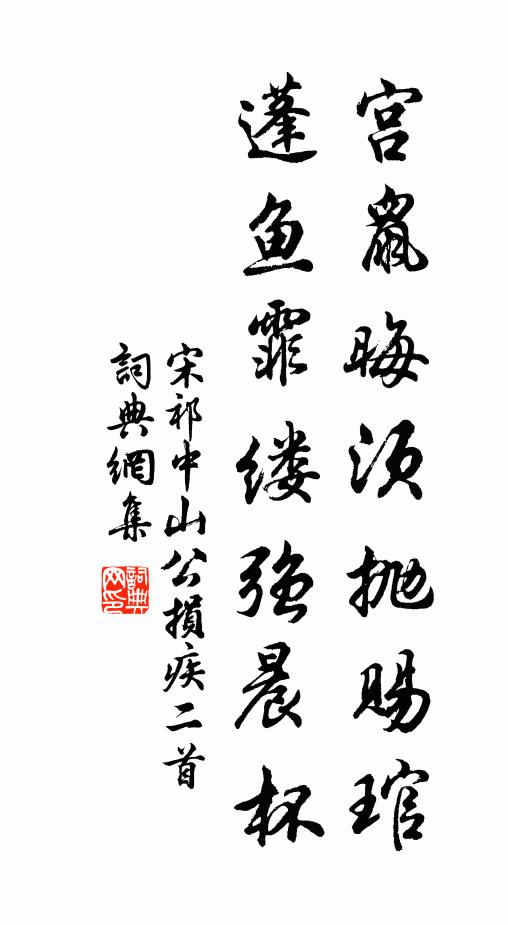 宫鼠晦须抛赐琯
蓬鱼霏缕强晨杯
宋祁中山公損疾二首
詞典網集
詞典网印